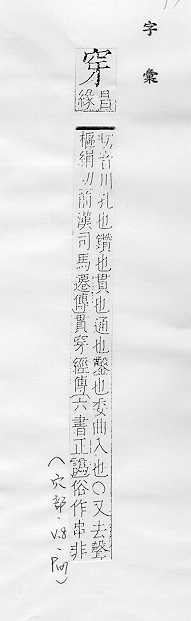 字彙
穿
昌緣
切音川孔也鑽也貫也通也鑿也委曲入也○又去聲
樞絹切前漢司馬遷傳貫穿經傳六書正譌俗作串非
(穴部.